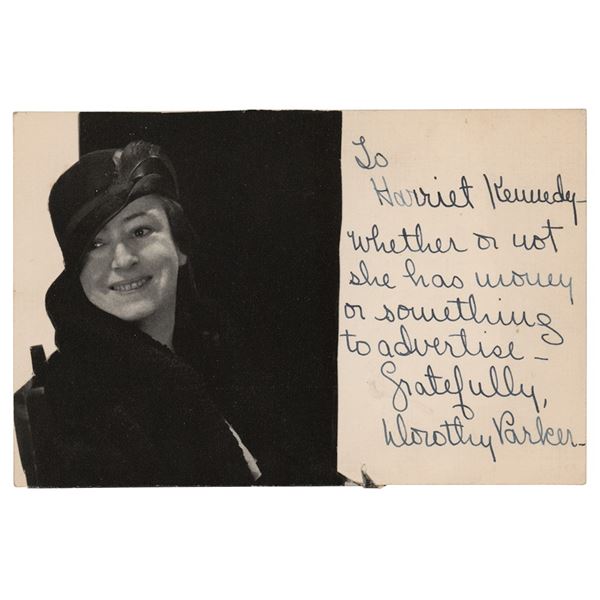 To
Harriet Kennedy—
whether or not
she has money
or something
to advertise —
Gratefully,
Dorothy Parker—